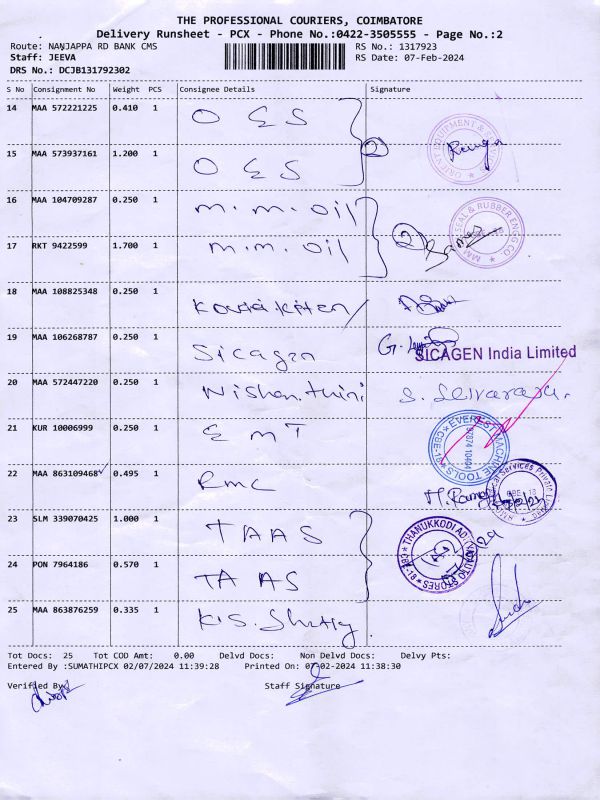 THE PROFESSIONAL COURIERS, COIMBATORE
Delivery Runsheet - PCX - Phone No.:0422-3505555 - Page No.:2
Route: NANJAPPA RD BANK CMS RS No.: 1317923
Staff: JEEVA RS Date: 07-Feb-2024
DRS No.: DCJB131792302
S No Consignment No Weight PCS Consignee Details Signature
14 MAA 572221225 0.410 1 O E S
15 MAA 573937161 1.200 1 O E S
2 Renga
16 MAA 104709287 0.250 1 m.m.oil
17 RKT 9422599 1.700 1 m.m.oil
2
SEAL & RUBBER ENGG CO. MM
18 MAA 108825348 0.250 1
19 MAA 106268787 0.250 1 Sicagen
SICAGEN India Limited
20 MAA 572447220 0.250 1 S. Selvaraju.
21 KUR 10006999 0.250 1 E M T
EVEREST MACHINE TOOLS CBE-18
97874 10464
22 MAA 863109468 0.495 1 RMC
23 SLM 339070425 1.000 1 TAAS
THANUKKODI AUTO STORES CBE-18
24 PON 7964186 0.570 1 TAAS
25 MAA 863876259 0.335 1 K.S. Shetty.
Tot Docs: 25 Tot COD Amt: 0.00 Delvd Docs: Non Delvd Docs: Delvy Pts:
Entered By :SUMATHIPCX 02/07/2024 11:39:28 Printed On: 07-02-2024 11:38:30
Verified By Staff Signature